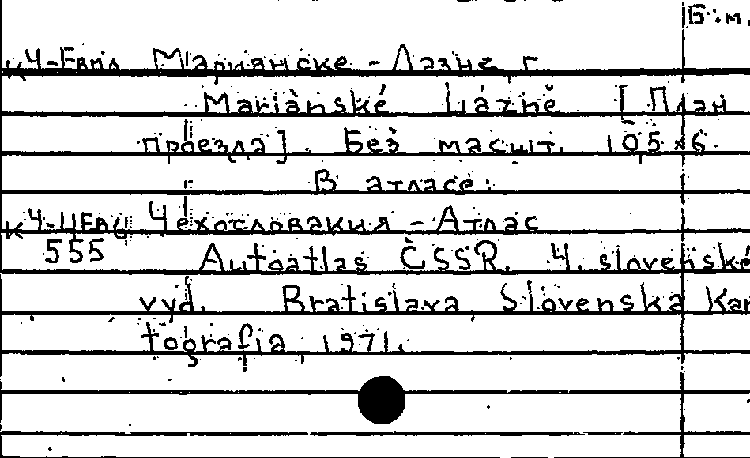 Б.м.
К4-Евмл Марианске - Лазне, г.
Mariánské Lázně [План
проезда]. Без масшт. 10,5×6.
В атласе:
К4-ЦЕвц Чехословакия - Атлас
555 Autoatlas ČSSR. 4. slovenské
vyd. Bratislava, Slovenská Kar
tografia, 1971.